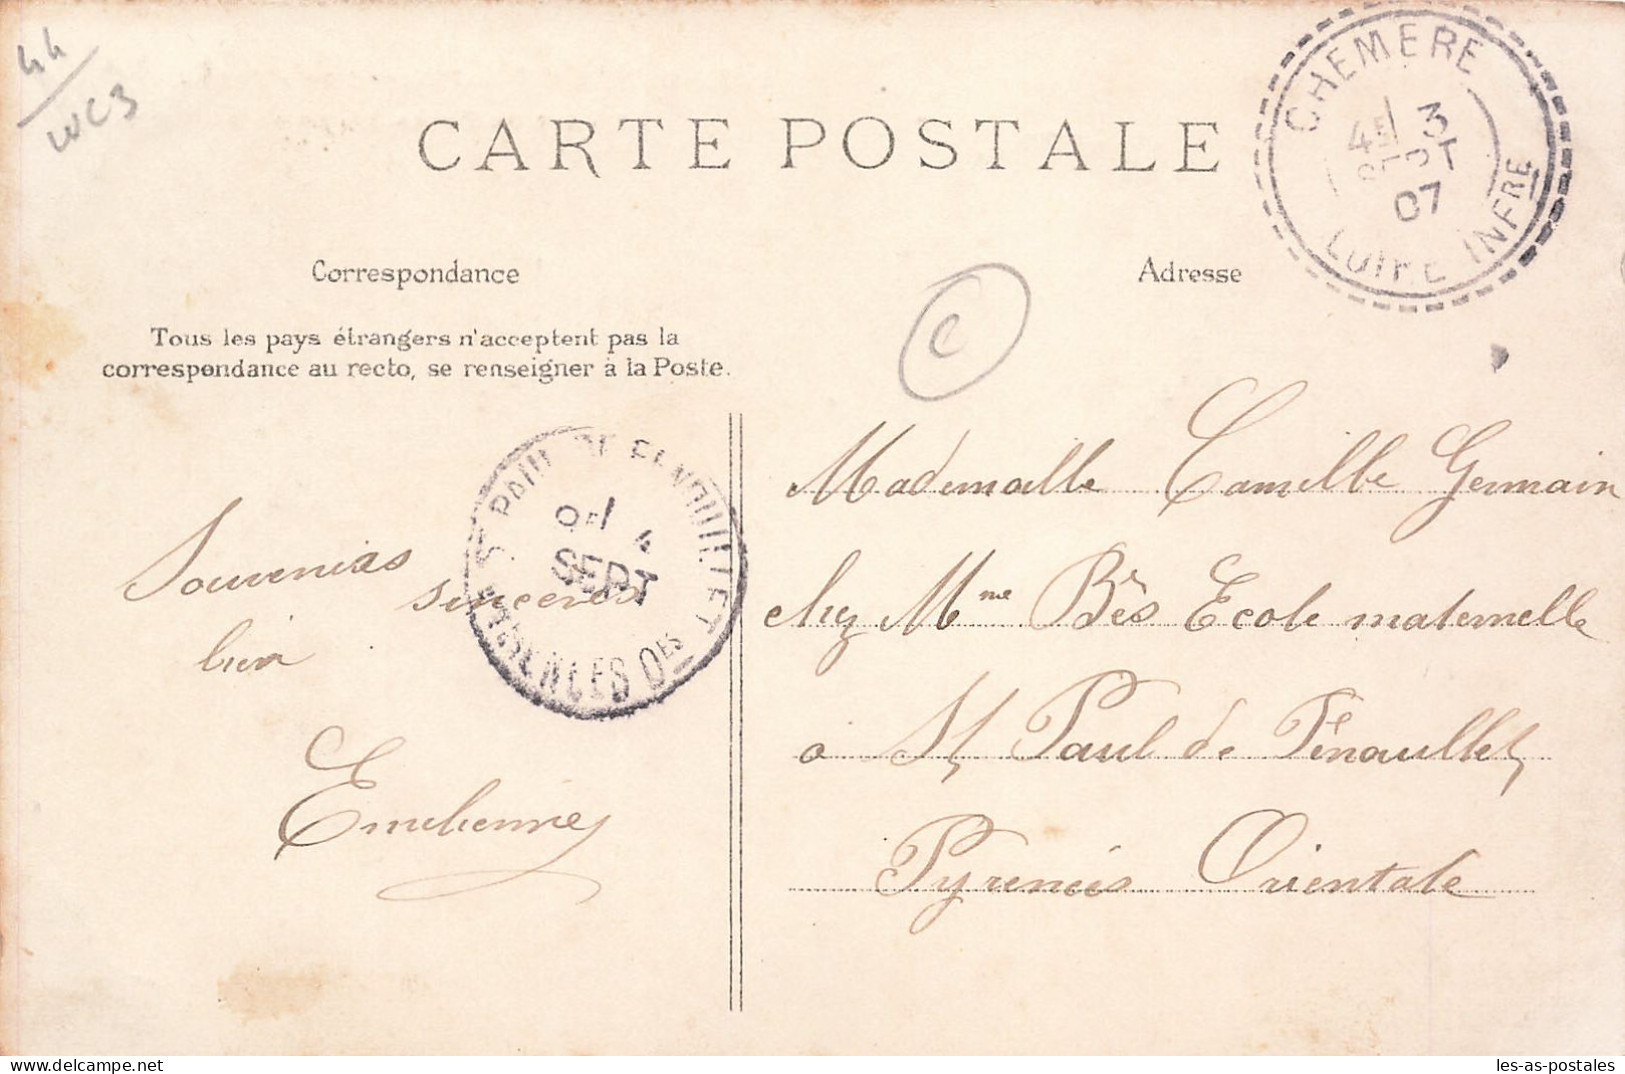 44
WC3
CARTE POSTALE
CHEMERE
4E 3
SEPT
07
LOIRE INFRE
Correspondance
Adresse
Tous les pays étrangers n'acceptent pas la
correspondance au recto, se renseigner à la Poste.
C
ST PAUL DE FENOUILLET
4
SEPT
PYRENEES OES
Souvenirs
sincères
Mademoille Camille Germain
chez Mme Bès Ecole maternelle
a St Paul de Fénouillet
Pyrenées Orientale
les-as-postales